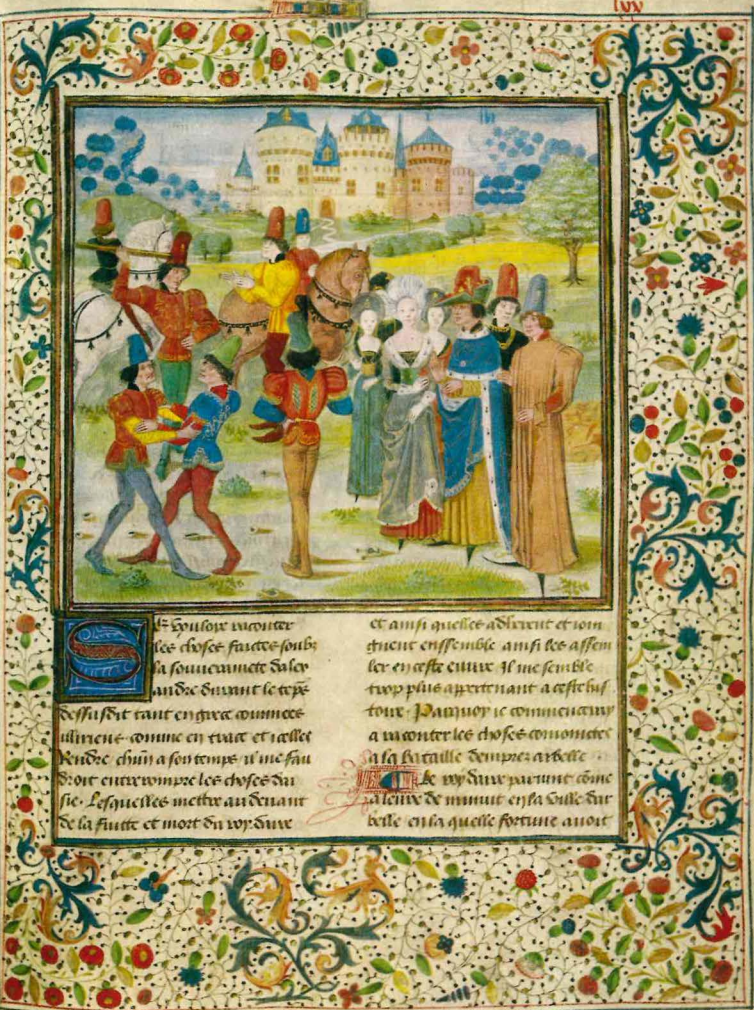 SE vouloie raconter
les choses faictes soubz
la souverainete dalex
andre durant le tẽps
dessusdit tant en grece commees
ulliriens comme en trace et icelles
Rendre chũn a son temps il me fau
droit entrerompre les choses da
sie. Lesquelles mettre au devant
de la fuitte et mort du roy daire
et ainsi quelles adherent et ioin
gnent enssemble ainsi les assem
bler en ceste euure Il me semble
trop plus appertenant a ceste his
toire. Parquoy ie commenceray
a raconter les choses conioinctes
a la bataille dempres arbelle.
Le roy daire parvint cõme
a leure de minuit en la ville dar
belle en la quelle fortune avoit